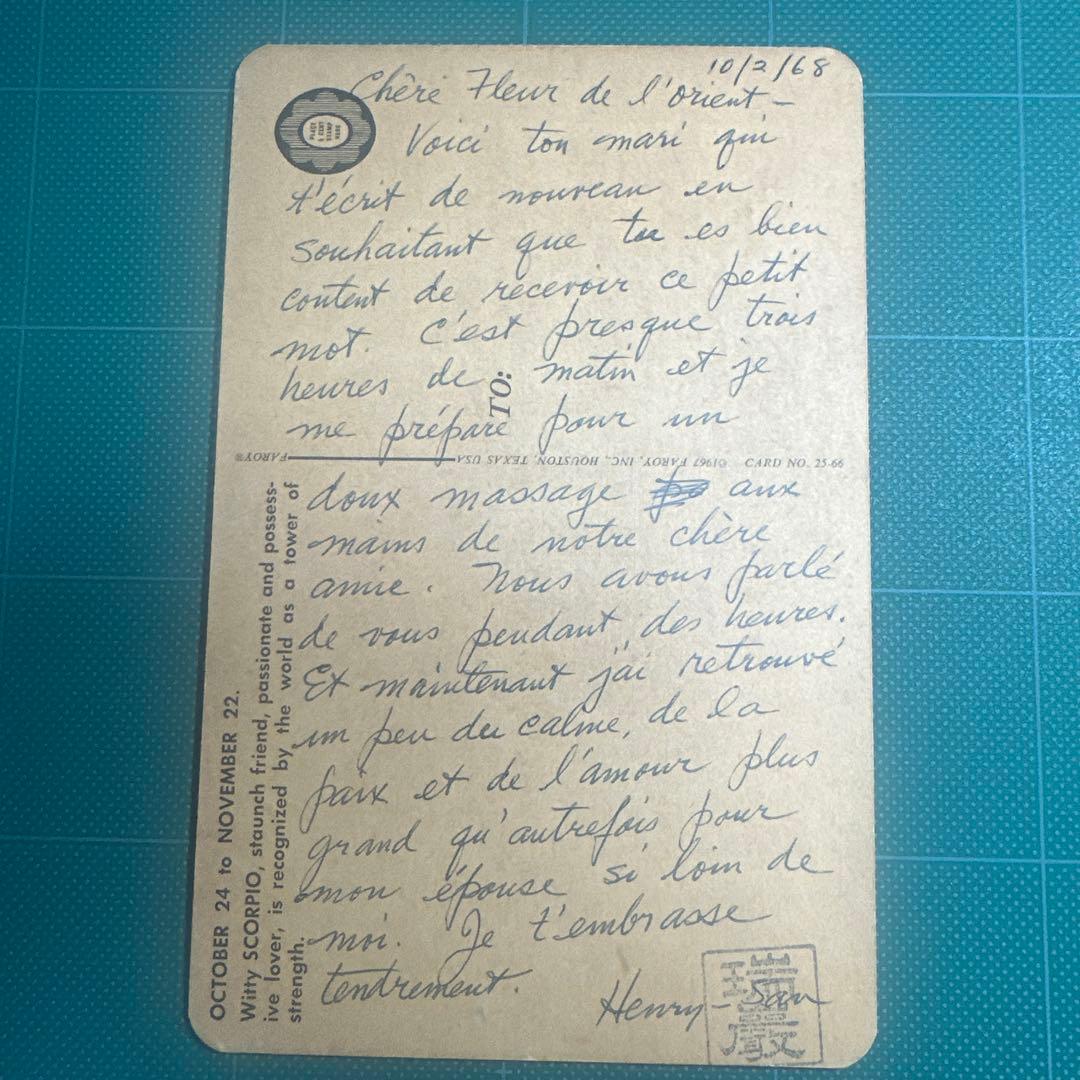 10/2/68
Chère Fleur de l'Orient—
Voici ton mari qui
t'écrit de nouveau en
souhaitant que tu es bien
content de recevoir ce petit
mot. C'est presque trois
heures de matin et je
me prépare pour un
doux massage aux
mains de notre chère
amie. Nous avons parlé
de vous pendant des heures.
Et maintenant j'ai retrouvé
un peu du calme, de la
paix et de l'amour plus
grand qu'autrefois pour
mon épouse si loin de
moi. Je t'embrasse
tendrement.
Henry-San
PLACE
STAMP
HERE
TO:
FAROY® ©1967 FAROY, INC., HOUSTON, TEXAS USA
CARD NO. 25-66
OCTOBER 24 to NOVEMBER 22.
Witty SCORPIO, staunch friend, passionate and possess-
ive lover, is recognized by the world as a tower of
strength.